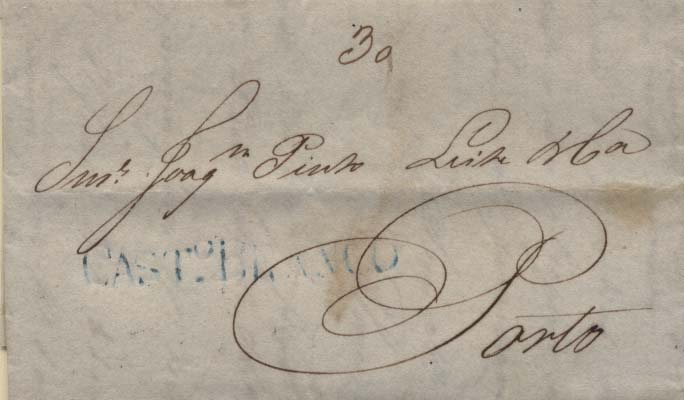 30
Snr. Joaqm Pinto Leite & Ca
CASTO. BRANCO
Porto